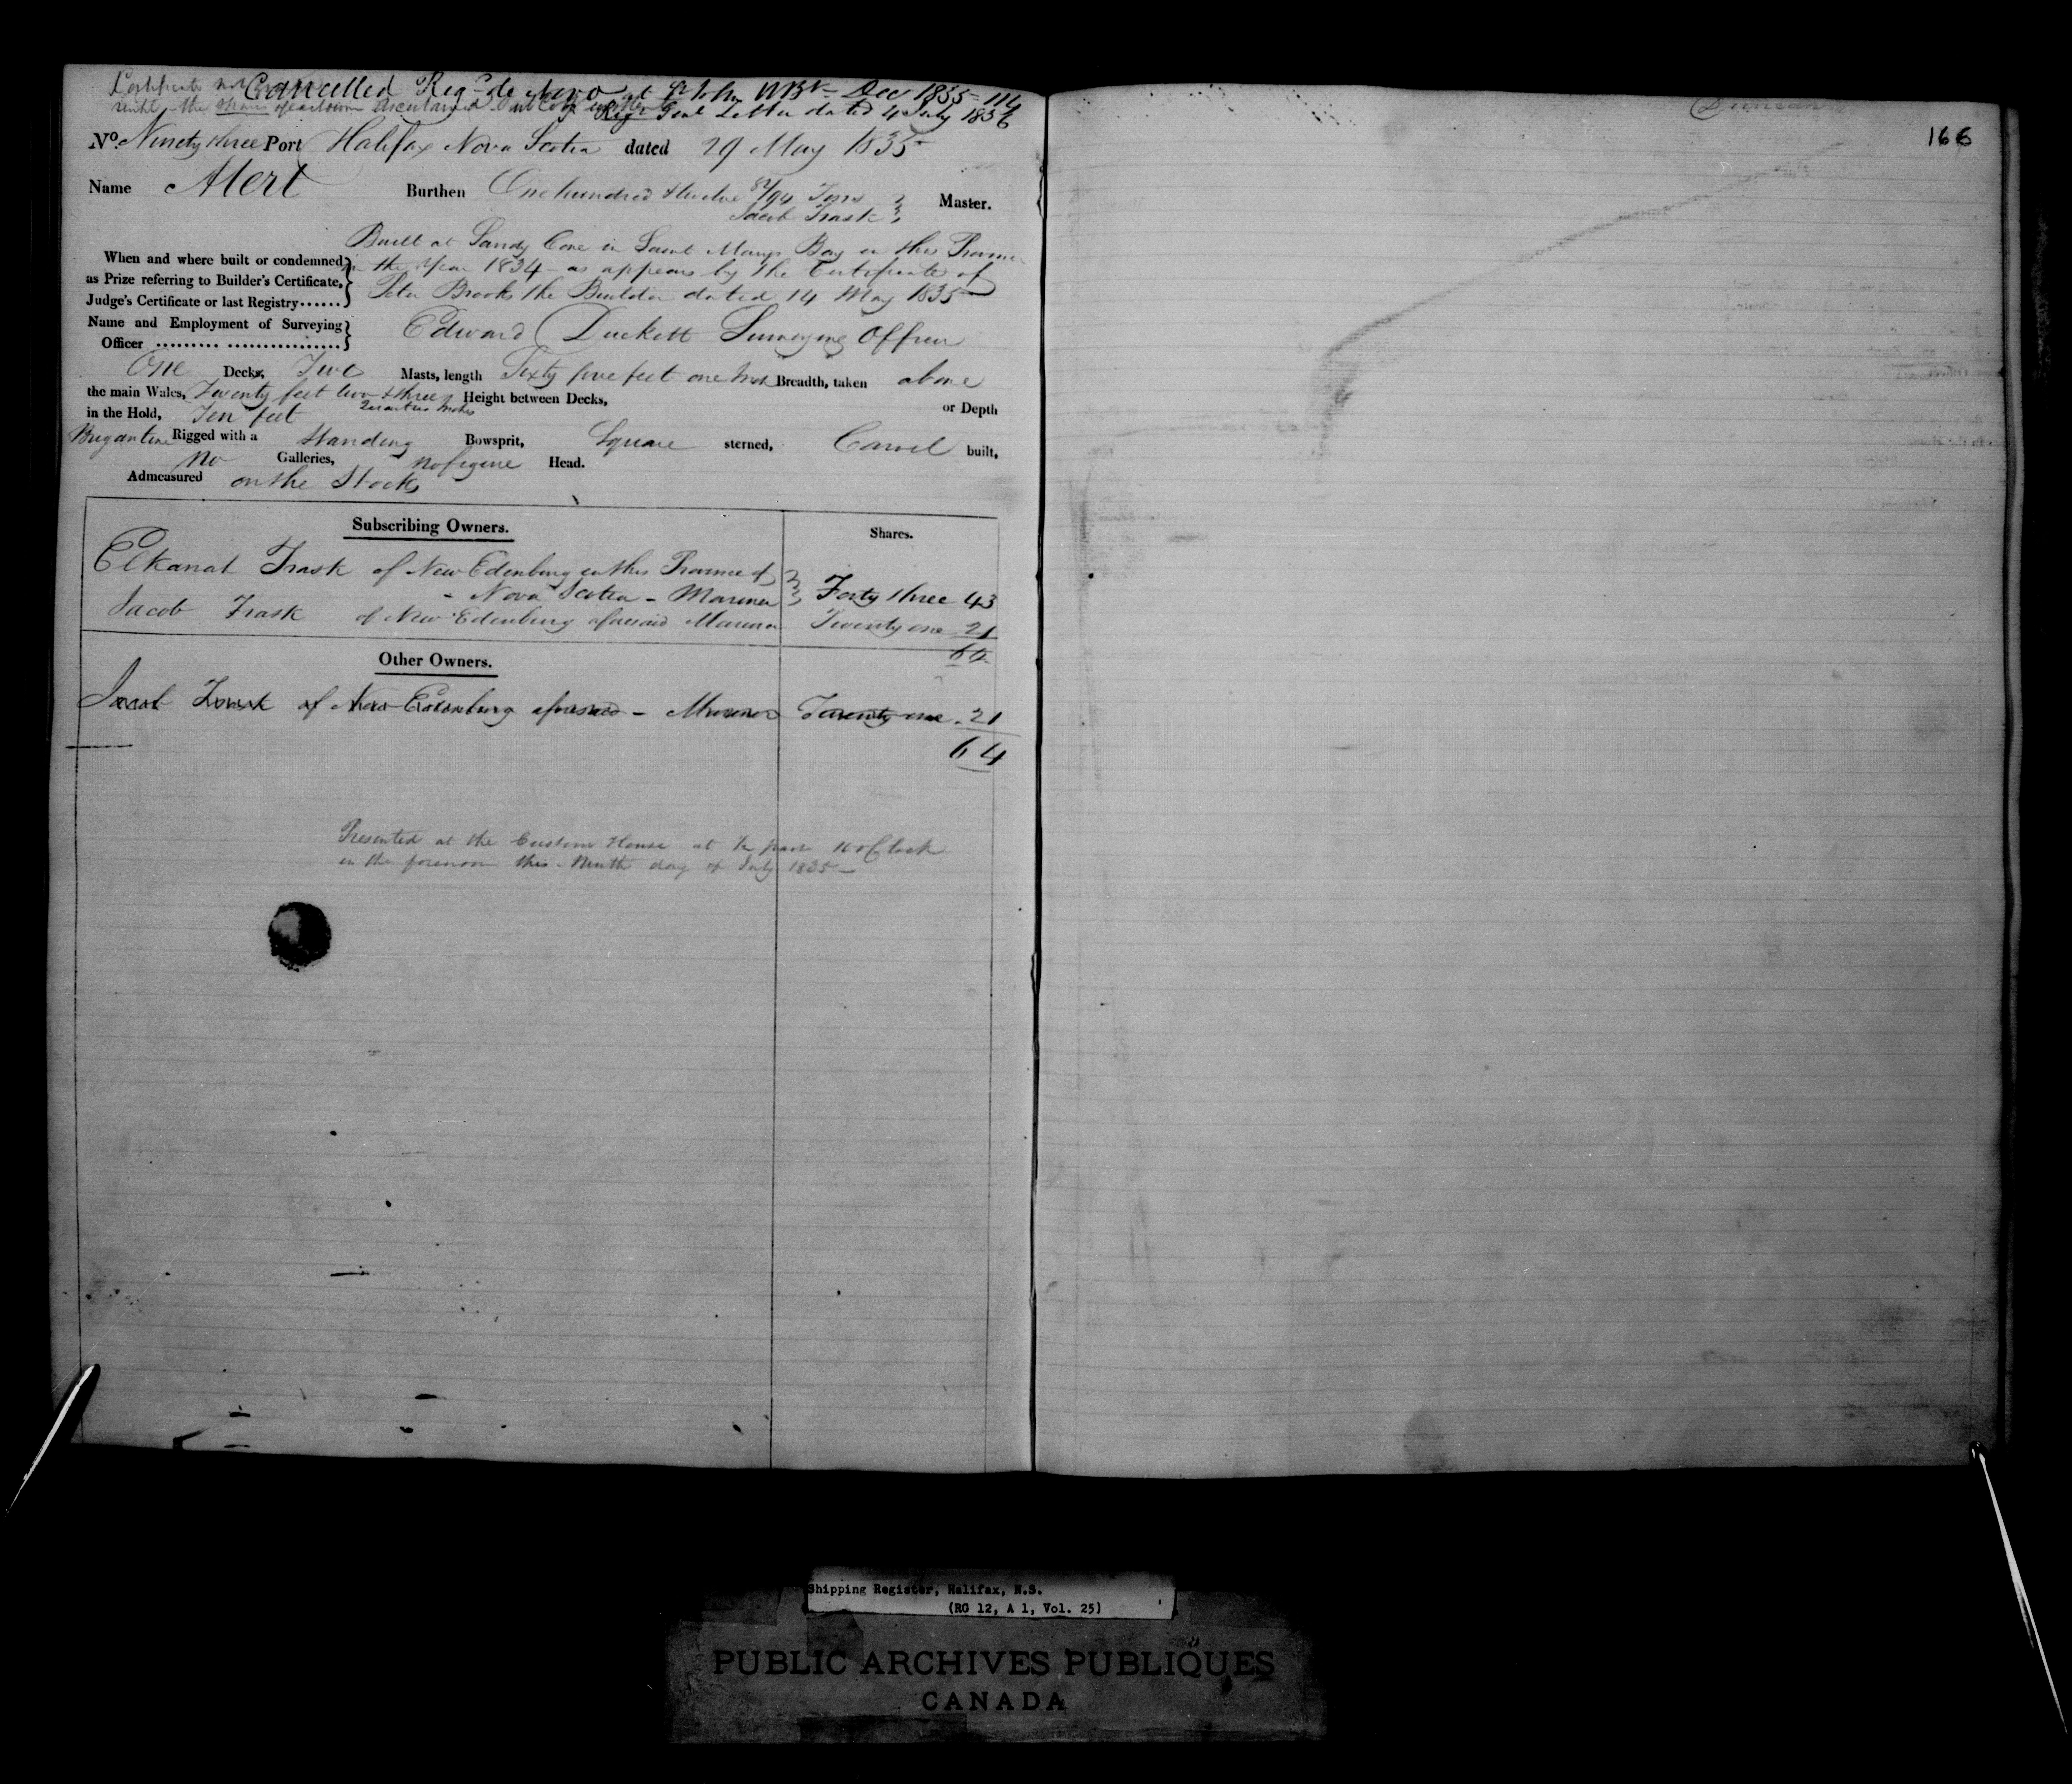 Certificate not Cancelled Reg de novo at St John NBk Dec 1835 114
until the shares
Regr Genl Letter dated 4 July 1836
No. Ninety three Port Halifax Nova Scotia dated 29 May 1835
Name Alert Burthen One hundred & twelve 82/94 Tons
Jacob Trask Master.
Built at Sandy Cove in Saint Marys Bay in this Province
When and where built or condemned in the Year 1834 - as appears by the Certificate of
as Prize referring to Builder's Certificate, Peter Brooks the Builder dated 14 May 1835
Judge's Certificate or last Registry......
Name and Employment of Surveying Edward Duckett Surveying Officer
Officer ......... ................
One Decks, Two Masts, length Sixty five feet one Inch Breadth, taken above
the main Wales, Twenty feet two & three Height between Decks,
quarters Inches
in the Hold, Ten feet or Depth
Brigantine Rigged with a Standing Bowsprit, Square sterned, Carvel built,
no Galleries, no figure Head.
Admeasured on the Stocks
Subscribing Owners. Shares.
Elkanah Trask of New Edenburg in this Province of
Nova Scotia - Mariner Forty three 43
Jacob Trask of New Edenburg aforesaid Mariner Twenty one 21
64
Other Owners.
Jacob Trask of New Edenburg aforesaid - Mariner Twenty one 21
64
Presented at the Custom House at 1/2 past 10 oClock
in the forenoon this Ninth day of July 1835
166
Shipping Register, Halifax, N.S.
(RG 12, A 1, Vol. 25)
PUBLIC ARCHIVES PUBLIQUES
CANADA